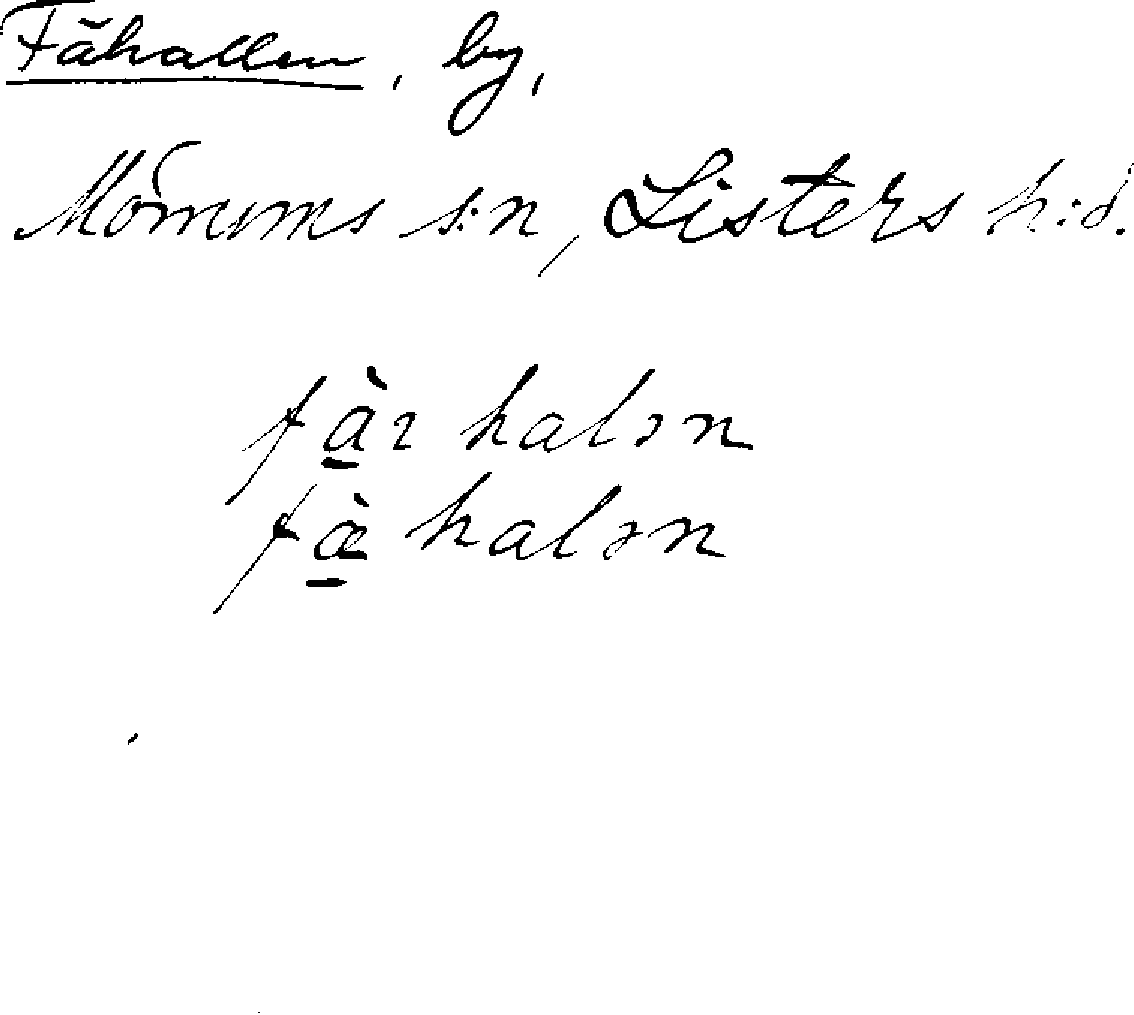 Fähallen, by,
Mörrums s:n, Listers h:d.
fà̱ı halən
fæ̱̀ halən